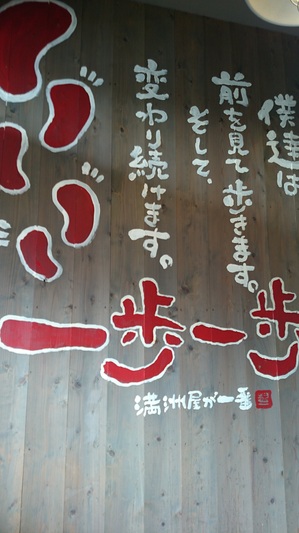 僕達は
前を見て歩きます。
そして、
変わり続けます。
一歩一歩
満洲屋が一番